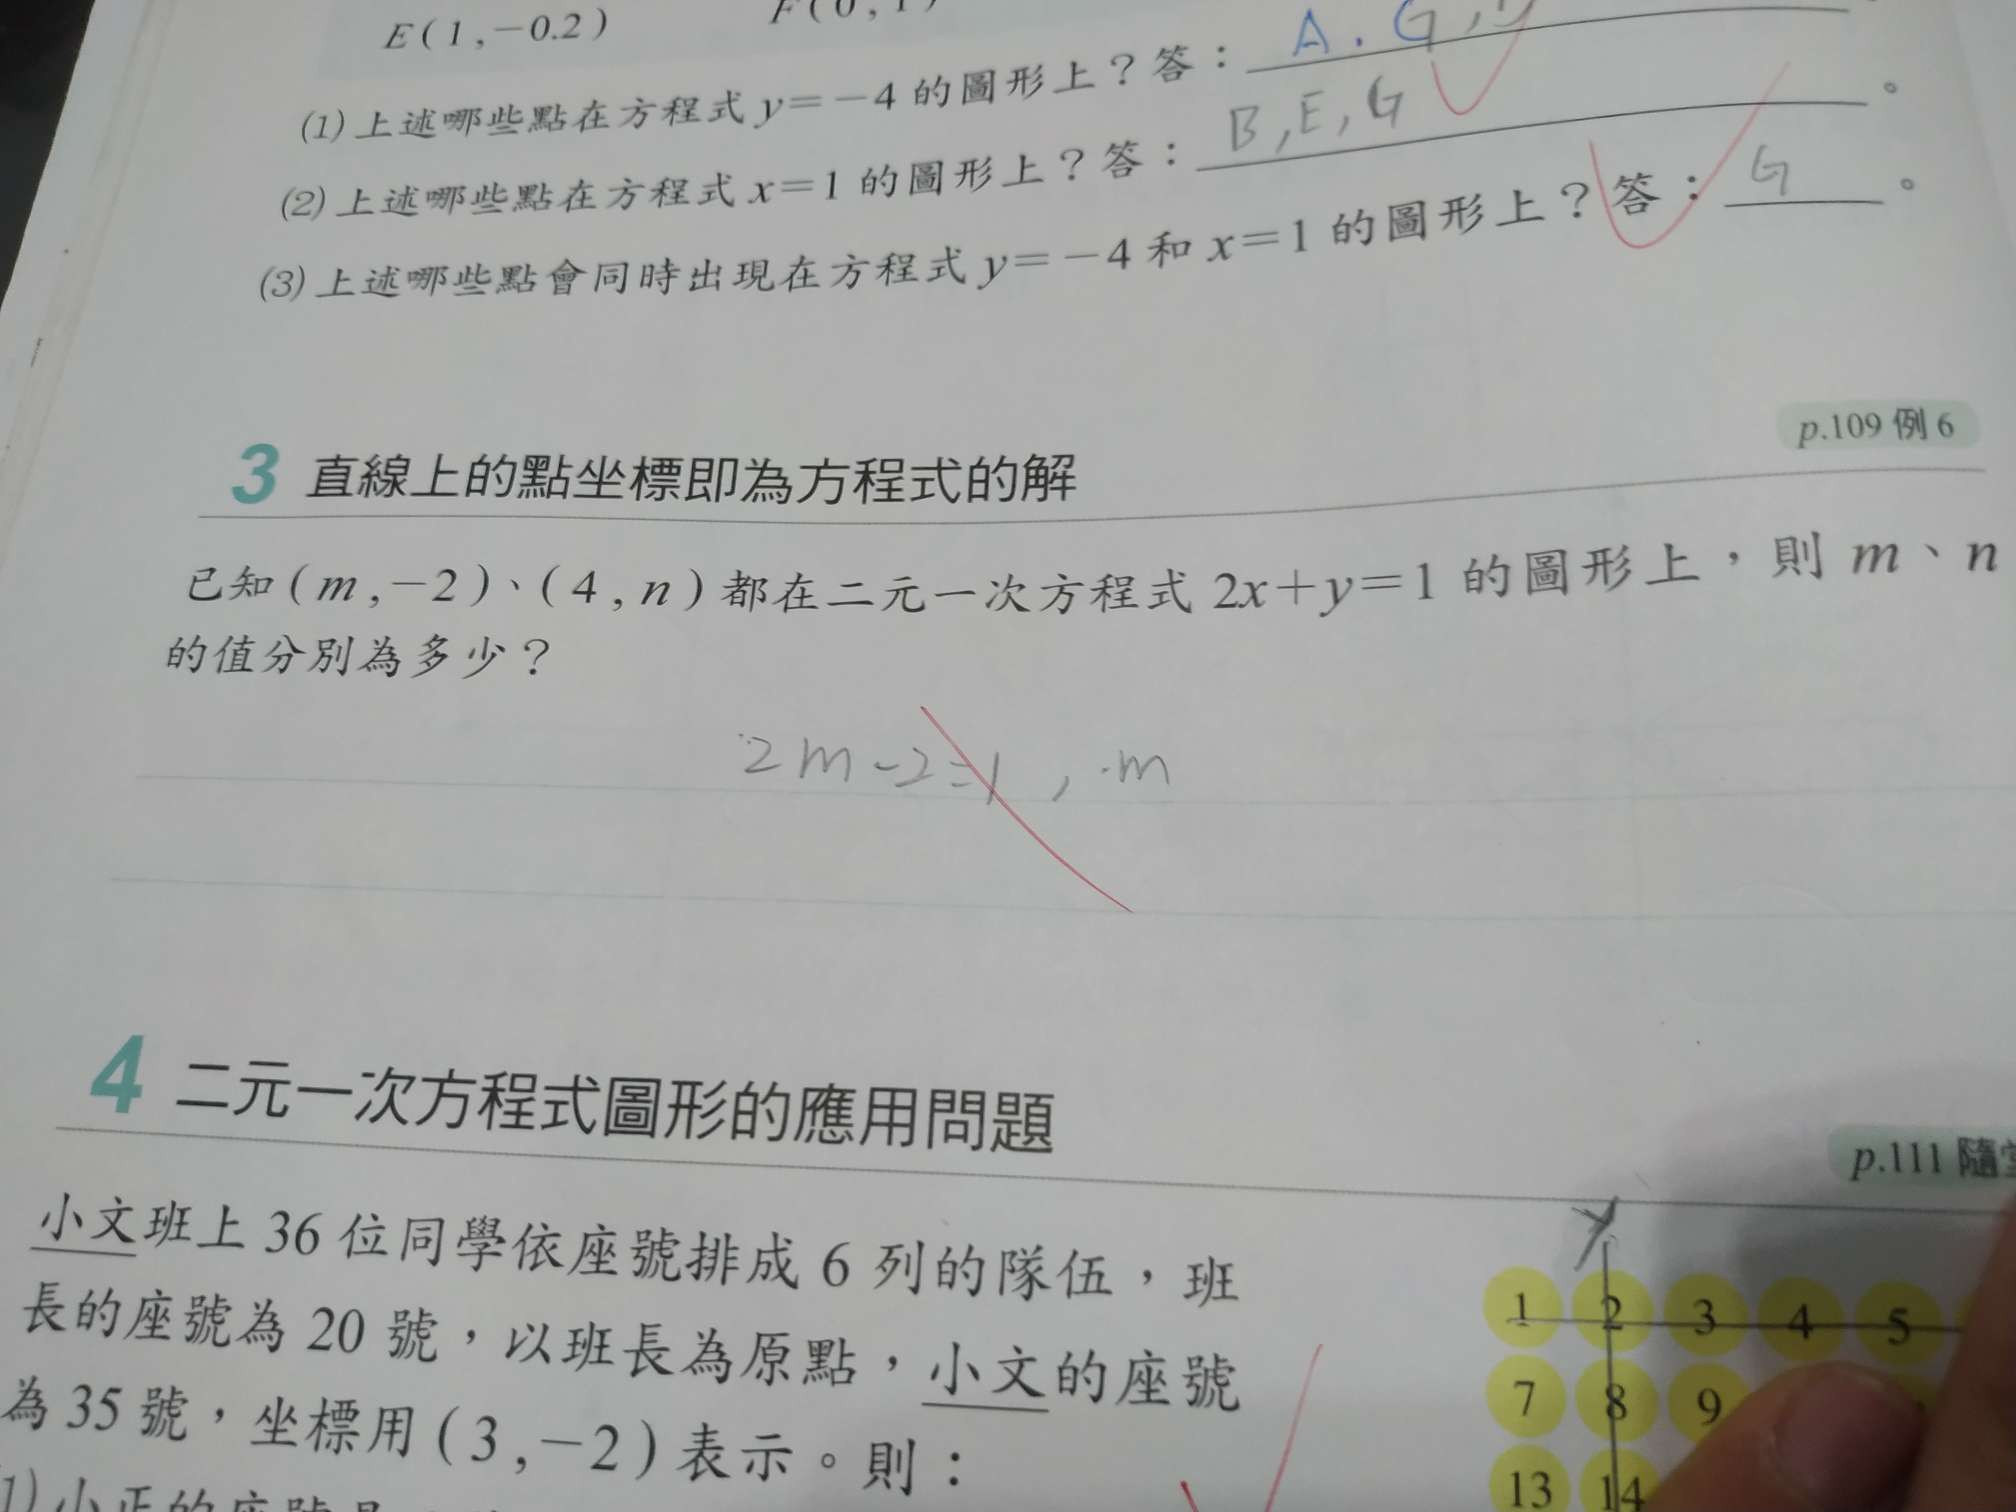 E(1,-0.2) F(0,1)
(1)上述哪些點在方程式 y=-4 的圖形上？答： A.G,
(2)上述哪些點在方程式 x=1 的圖形上？答： B,E,G 。
(3)上述哪些點會同時出現在方程式 y=-4 和 x=1 的圖形上？答： G 。
p.109 例 6
3 直線上的點坐標即為方程式的解
已知(m,-2)、(4,n)都在二元一次方程式 2x+y=1 的圖形上，則 m、n
的值分別為多少？
2m-2=1 , m
4 二元一次方程式圖形的應用問題
p.111 隨
y
小文班上 36 位同學依座號排成 6 列的隊伍，班
長的座號為 20 號，以班長為原點，小文的座號
為 35 號，坐標用(3,-2)表示。則：
1 2 3 4 5
7 8 9
13 14